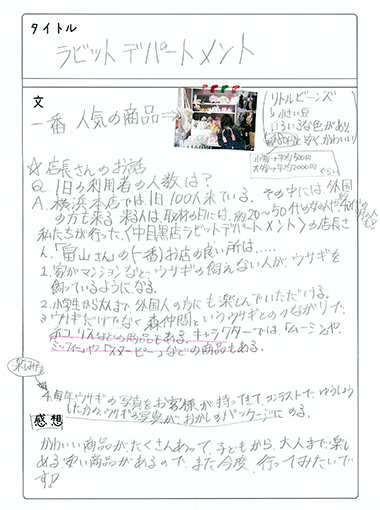 タイトル
ラビットデパートメント
文
一番 人気の商品⇒
リトルビーンズ
↳小さい豆
いろいろな色があり、
☆店長さんのお話
Q.1日の利用者の人数は?
A.横浜本店では1日100人来ている。その中には外国
の方も来る 来る人は、取材の日には、約20〜50代の
私たちが行った、〈中目黒店ラビットデパートメント〉の店長さ
ん、「畠山さんの(一番)お店の良い所は....
1.家がマンションなどで、ウサギの飼えない人が、ウサギを
飼っているようになる。
2.小学生から大人まで、外国人の方にも楽しんでいただける。
3.ウサギだけでなく森仲間というウサギとのつながりで、
ネコ、リスなどの商品もある。キャラクターでは、「ムーミン」や、
「ミッフィー」や、「スヌーピー」などの商品もある。
4.毎年ウサギの写真をお客様が持ってきて、コンテストで、ゆうしょう
した方の、ウサギの写真が、おかしのパッケージにのる。
感想
かわいい商品が、たくさんあって、子どもから、大人まで、楽し
める 商品があるので、また今度、行ってみたいで
す!